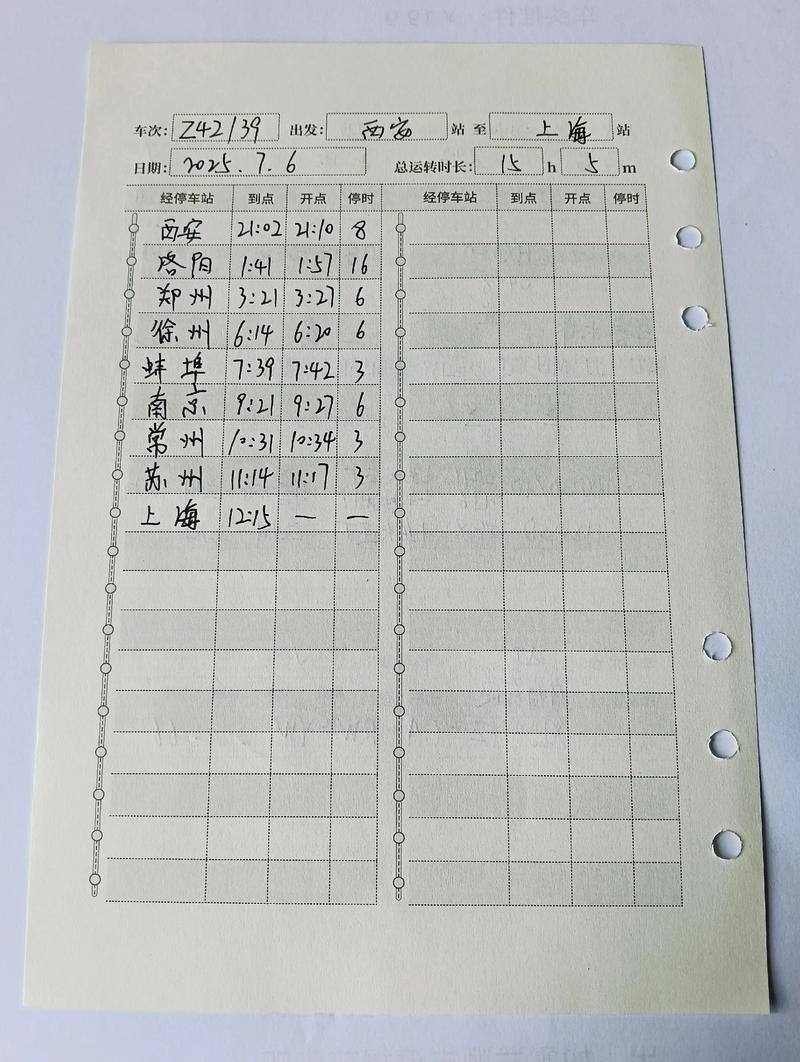 车次: Z42/39 出发: 西安 站 至 上海 站
日期: 2025.7.6 总运转时长: 15 h 5 m
经停车站 到点 开点 停时 经停车站 到点 开点 停时
西安 21:02 21:10 8
洛阳 1:41 1:57 16
郑州 3:21 3:27 6
徐州 6:14 6:20 6
蚌埠 7:39 7:42 3
南京 9:21 9:27 6
常州 10:31 10:34 3
苏州 11:14 11:17 3
上海 12:15 — —